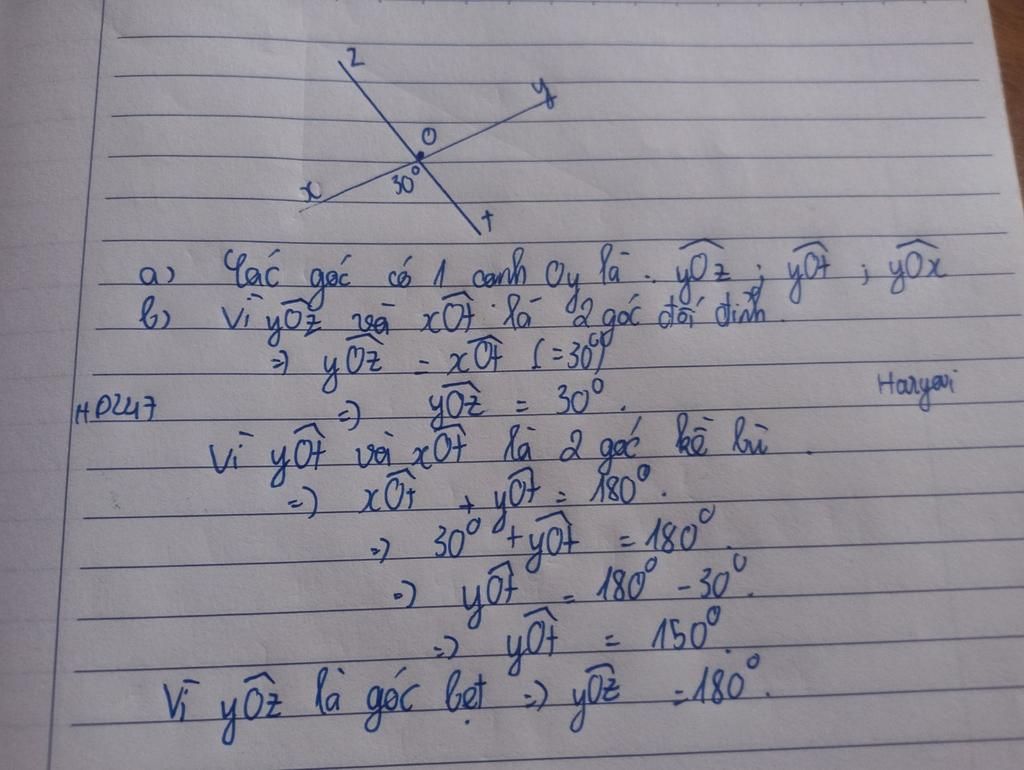 z
y
O
30°
x
t
a) Các góc có 1 cạnh Oy là. yOz ; yOt ; yOx
b) Vì yOz và xOt là 2 góc đối đỉnh.
=> yOz = xOt (=30°)
HD247 => yOz = 30°. Haryovi
Vì yOt và xOt là 2 góc kề bù.
=> xOt + yOt = 180°.
=> 30° + yOt = 180°.
=> yOt = 180° - 30°.
=> yOt = 150°.
Vì yOz là góc bẹt => yOz = 180°.